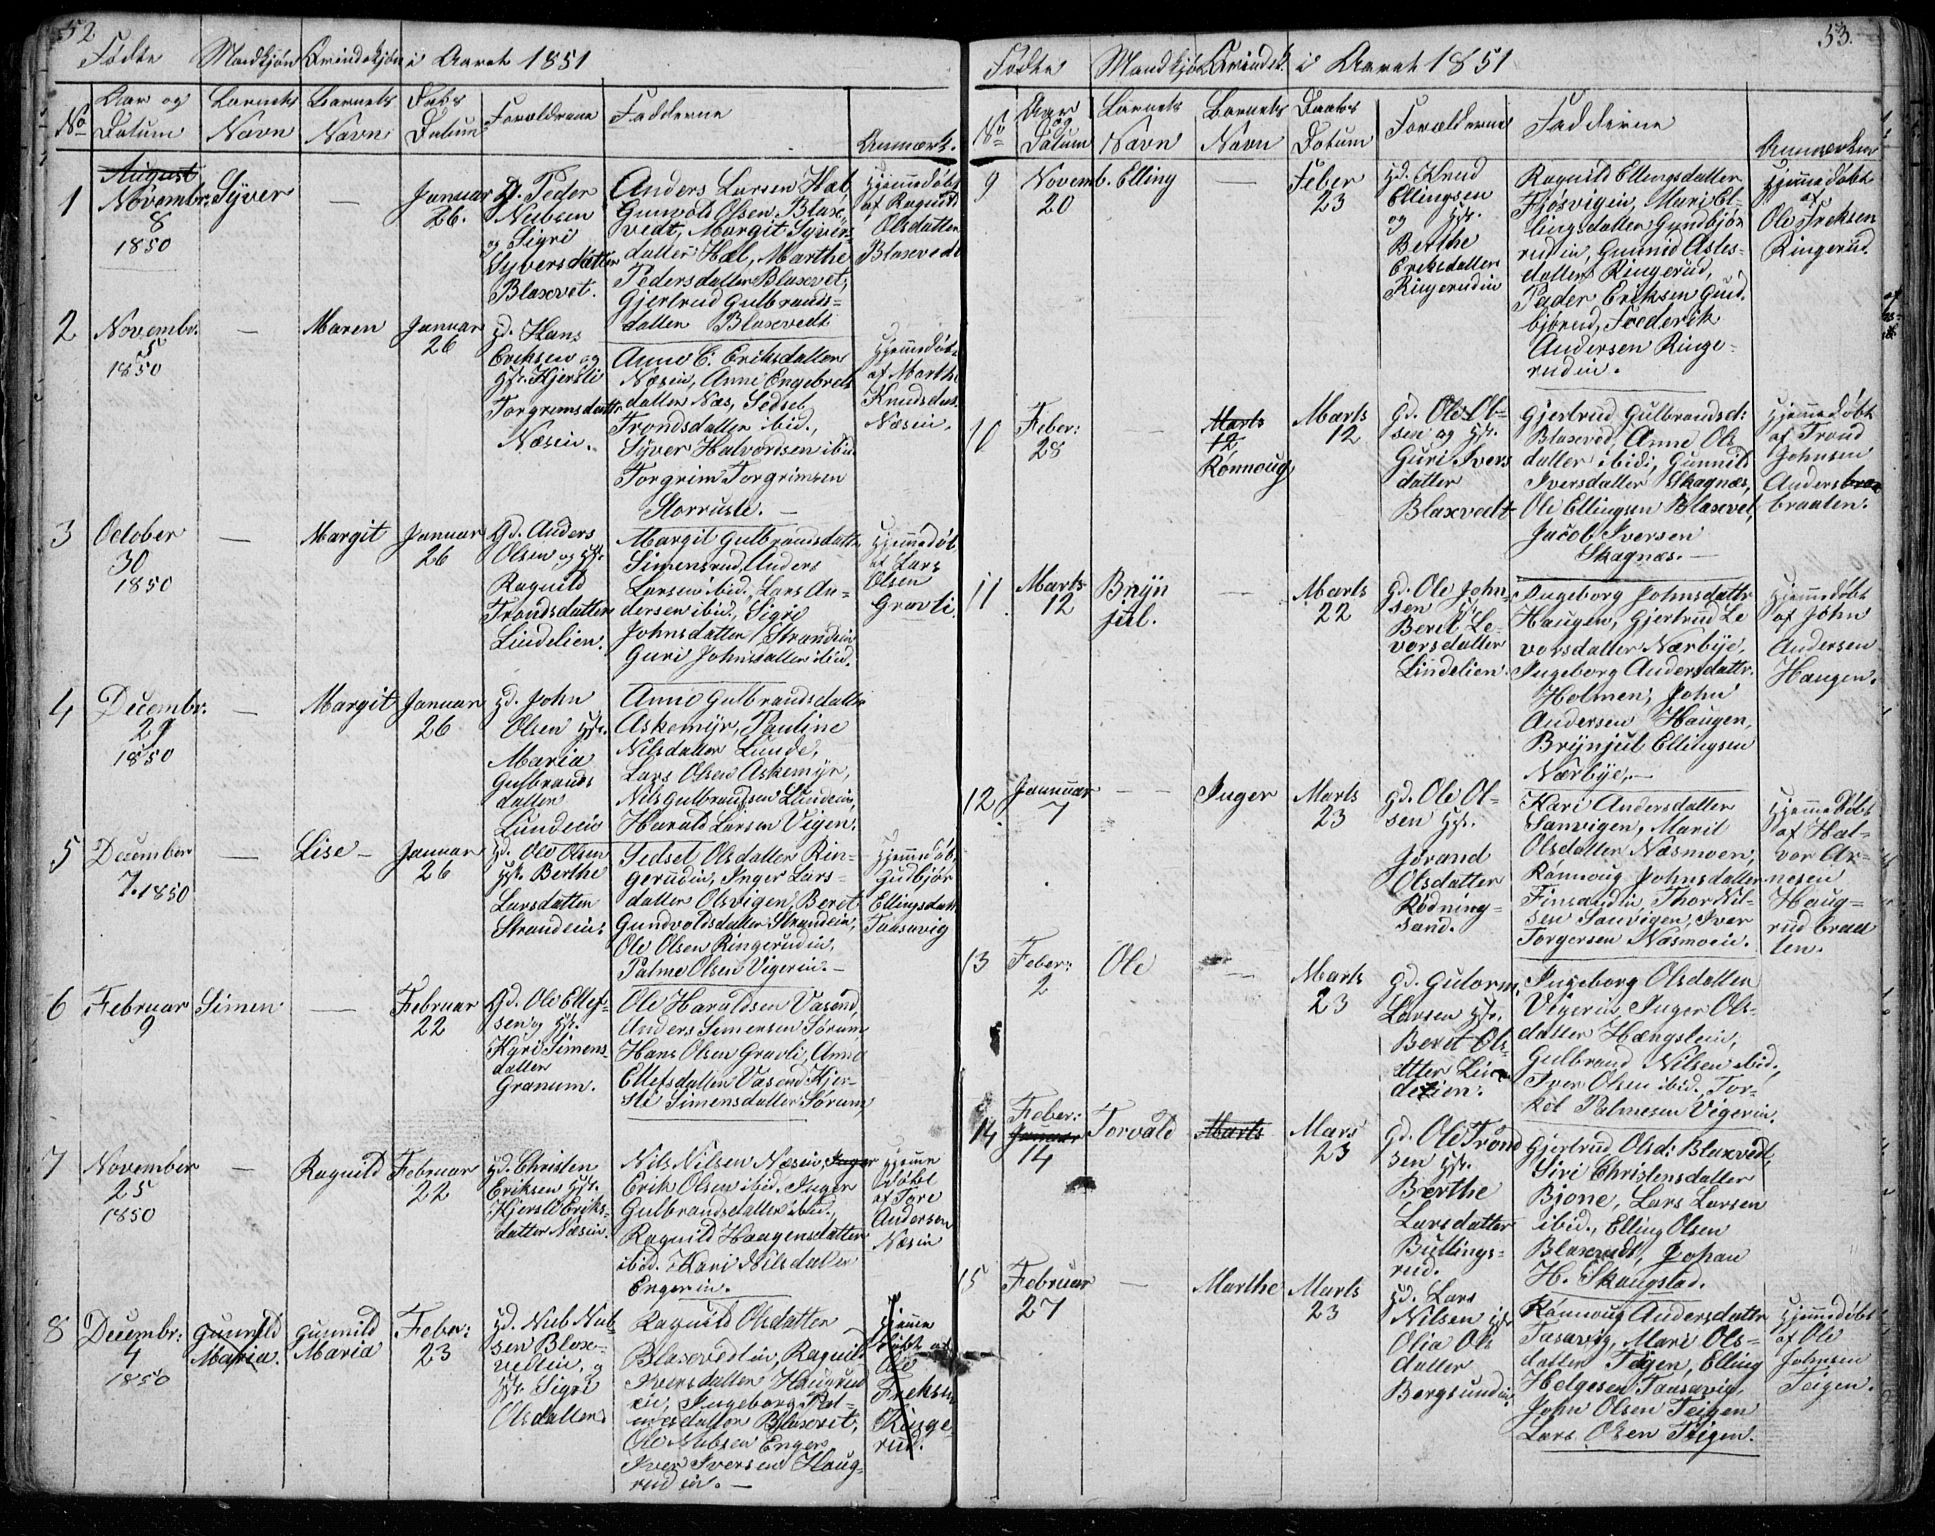 52
Fødte Mandkjøn Qvindekjøn i Aaret 1851
No
Aar og Datum
Barnets Navn
Barnets Navn
Daabs Datum
Forældrene
Fadderne
Anmærk.
1
August
Novembr.
8
1850
Syver
—
Januar
26.
Gd. Peder
Nubsen
og Sigri
Syversdatter
Blaxevet.
Anders Larsen Hæl,
Gunvold Olsen Blaxe-
vedt, Margit Syvers-
datter Hæl, Marthe
Pedersdatter Blaxevet,
Gjertrud Gulbrands-
datter Blaxevedt
Hjemmedøbt
af Ragnild
Olsdatter
Blaxevedt
2
Novembr.
5
1850
—
Maren
Januar
26
Gd. Hans
Eriksen og
Hst. Kjersti
Torgrimsdatter
Næsin.
Anne C. Eriksdatter
Næsin, Anne Engebrets
datter Næs, Sedsel
Trondsdatter ibid.,
Syver Halvorsen ibid.
Torgrim Torgrimsen
Storruste. —
Hjemmedøbt
af Marthe
Knudsdat.
Næsin.
3
October
30
1850
—
Margit
Januar
26
Gd. Anders
Olsen og Hst.
Ragnild
Trondsdatter
Lindelien.
Margit Gulbrandsdatter
Simensrud, Anders
Larsen ibid., Lars An-
dersen ibid., Sigri
Johnsdatter Strandein
Guri Johnsdatter ibid.
Hjemmedøbt
af Lars
Olsen
Gravli.
4
Decembr:
29
1850
—
Margit
Januar
26
Gd. John
Olsen Hst.
Maria
Gulbrands
datter
Lundein
Anne Gulbrandsdatter
Askemyr, Pauline
Nilsdatter Lunde,
Lars Olsen Askemyr,
Nils Gulbrandsen Lundein,
Harald Larsen Vigen.
5
December
7. 1850
—
Lise —
Januar
26
Gd. Ole Olsen
Hst. Berthe
Larsdatter
Strandein.
Sedsel Olsdatter Rin-
gerudin, Inger Lars-
datter Olsvigen, Beret
Gundvoldsdatter Strandein,
Ole Olsen Ringerudin,
Palme Olsen Vigerin. —
Hjemmedøbt
Gudbjør
Ellingsdatt
Taasavig
6
Februar
9
Simen
—
Februar
22
Gd. Ole Ellef-
sen og Hst.
Kyri Simens-
datter
Granum.
Ole Haraldsen Vasend,
Anders Simensen Sørum,
Hans Olsen Gravli, Anne
Ellefsdatter Vasend, Kjer-
sti Simensdatter Sørum
7
November
25
1850
—
Ragnild
Februar
22
Gd. Christen
Eriksen Hst.
Kjersti Eriks-
datter Næsin.
Nils Nilsen Næsin, Inger
Erik Olsen ibid. Inger
Gulbrandsdatter ibid.,
Ragnild Haagensdatter
ibid. Kari Nilsdatter
Engerin.
Hjemme
døbt
af Tore
Andersen
Næsin
8
Decembr:
4
1850
Gunnild
Maria.
Gunnild
Maria
Feber:
23
Gd. Nub Nub-
sen Blaxe-
vedtin, og
Hst. Sigri
Olsdatter
Ragnild Olsdatter
Blaxevedtin, Ragnild
Iversdatter Haugrud
ein, Ingeborg Pal-
mesdatter Blaxevet,
Ole Nubsen Enger,
Iver Iversen Haug-
rudin. —
Hjemme
døbt af
Ole
Freksen
Ringe-
rud.
53.
Fødte Mandkjøn Qvindek. i Aaret 1851
No
Aar og Datum
Barnets Navn
Barnets Navn
Daabs Datum
Forældrene
Fadderne
Anmærkn
9
Novemb.
20
Elling
—
Feber
23
Gd. Knud
Ellingsen
og Hst.
Berthe
Eriksdatter
Ringerudin
Ragnild Ellingsdatter
Fjøsvigin, Mari El-
lingsdatter Gundbjør
rudin, Gunnild Asles-
datter Ringerud,
Peder Eriksen Gud-
bjørud, Frederik
Andersen Ringe-
rudin.
Hjemmedøbt
af
Ole Freksen
Ringerud.
10
Feber:
28
—
Marts
12
Rønnoug
Marts
12
Gd. Ole Ol-
sen og Hst.
Guri Ivers
datter
Blaxevedt
Gjertrud Gulbrandsd:
Blaxeved, Anne Ols
datter ibid:, Gunnild
Iversdatter Skagnæs,
Ole Ellingsen Blaxevet,
Jacob Iversen
Skagnæs. —
Hjemmedøbt
af Trond
Johnsen
Anders
braaten.
11
Marts
12
Bryn
jul.
—
Marts
22
Gd. Ole John-
sen Hst.
Beret Le-
vorsdatter
Lindelien
Ingeborg Johnsdattr
Haugen, Gjertrud Le
vorsdatter Nærbye,
Ingeborg Andersdattr.
Holmen, John
Andersen Haugen,
Brynjul Ellingsen
Nærbye, —
Hjemmedøbt
af John
Andersen
Haugen.
12
Januar
7
— —
Inger
Marts
23
Gd. Ole Ol-
sen Hst.
Jørand
Olsdatter
Rødning-
sand.
Kari Andersdatter
Sanvigen, Marit
Olsdatter Næsmoen,
Rønnoug Johnsdatter
Finsandin, Thor Nil-
sen Sanvigen, Iver
Torgersen Næsmoein.
Hjemmedøbt
af Hal-
vor Ar-
nesen
Haug-
rud braa
ten.
13
Feber:
2
Ole
—
Marts
23
Gd. Gutorm
Larsen Hst.
Beret Ols-
atter Lin
delien.
Ingeborg Olsdatter
Vigerin, Inger Ols-
datter Hængstein,
Gulbrand Nilsen ibid.,
Iver Olsen ibid., Tor-
kel Palmesen Vigerin.
14
Feber:
Januar
14
Torvald
Marts
Mars
23
Gd. Ole Trond
sen Hst.
Berthe
Larsdatter
Bullings-
rud.
Gjertrud Olsd: Blaxvedt,
Siri Christensdatter
Bjone, Lars Larsen
ibid., Elling Olsen
Blaxevedt, Johan
H. Skaugstad.
15
Februar
27
—
Marthe
Marts
23
Gd. Lars
Nilsen Hst
Olia Ols
datter
Bergsundin.
Rønnoug Andersdatter
Taasavig, Mari Ols-
datter Teigen, Elling
Helgesen Taasavig,
John Olsen Teigen
Lars Olsen Teigen.
Hjemmedøbt
af Ole
Johnsen
Teigen.